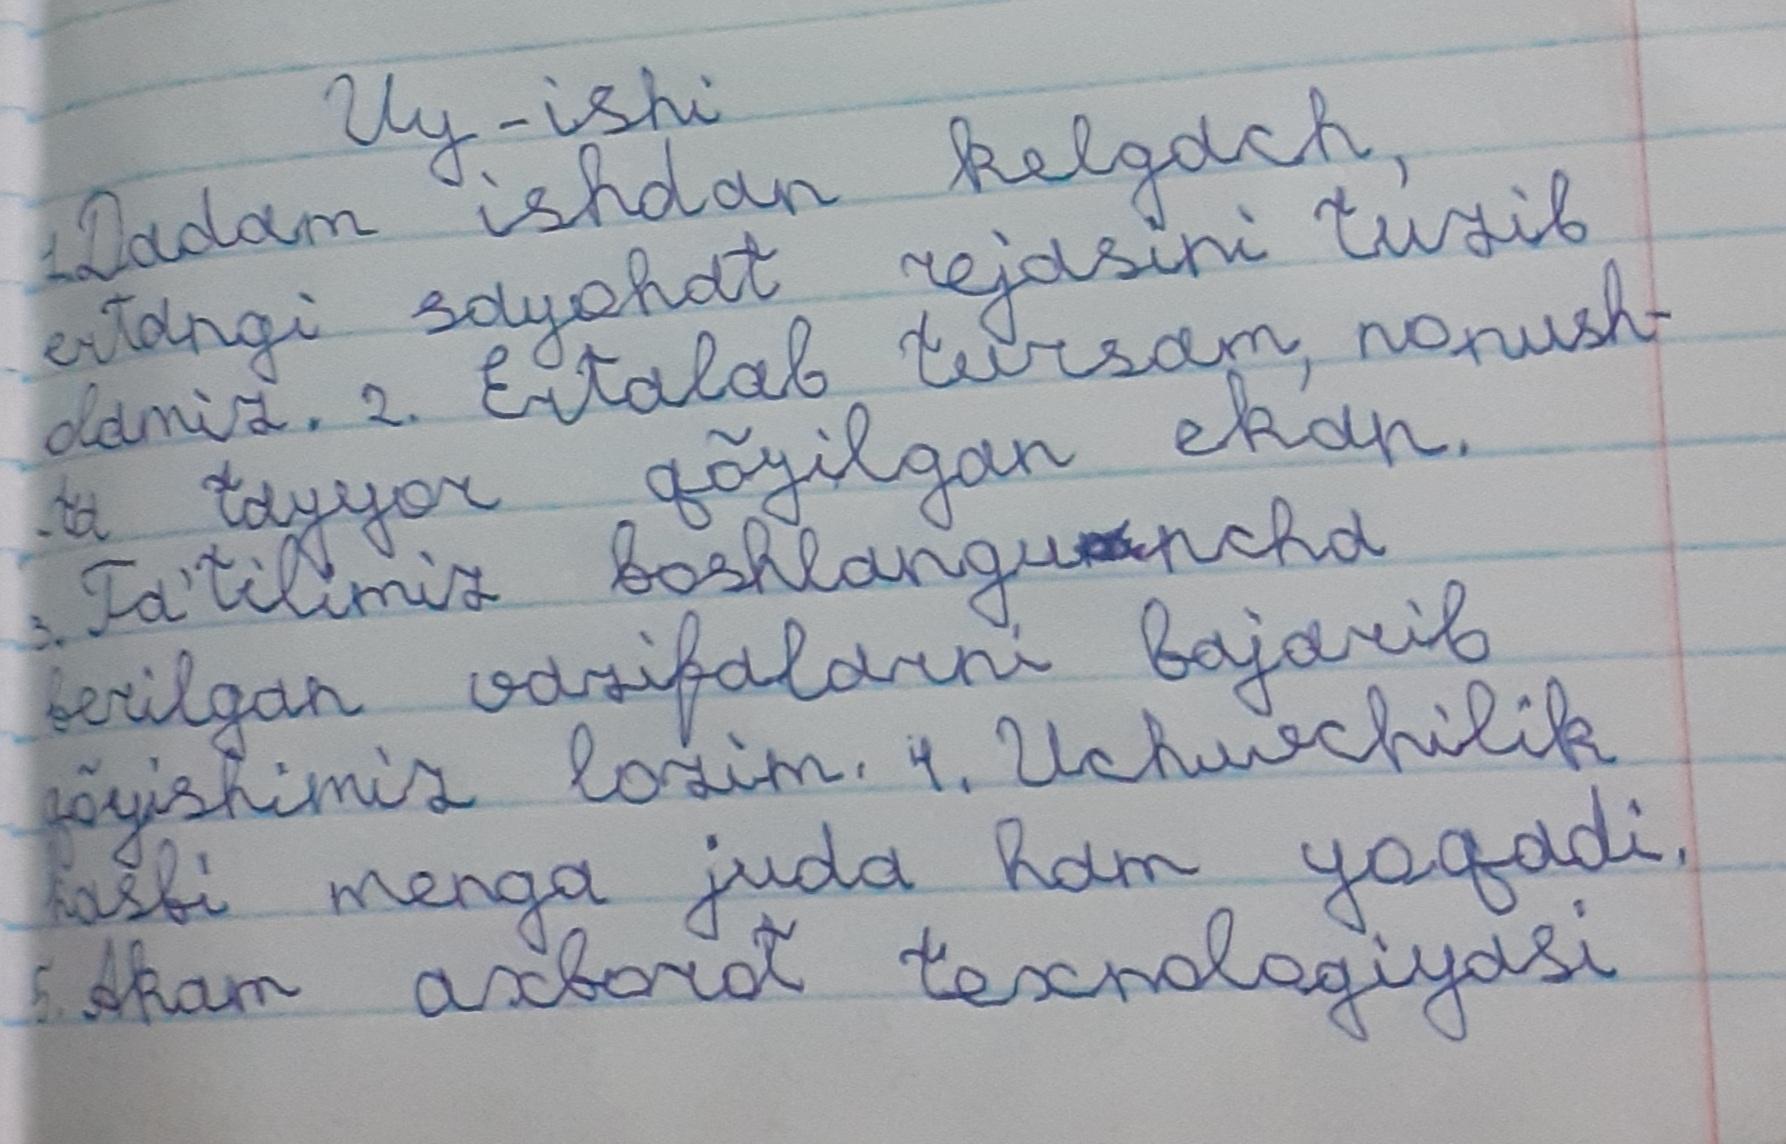 Uy-ishi
1. Dadam ishdan kelgach,
ertangi sayohat rejasini tuzib
olamiz. 2. Ertalab tursam, nonush-
-ta tayyor qõyilgan ekan.
3. Ta'tilimiz boshlangunncha
berilgan vazifalarni bajarib
qõyishimiz lozim. 4. Uchuvchilik
kasbi menga juda ham yoqadi.
5. Akam axborot texnologiyasi